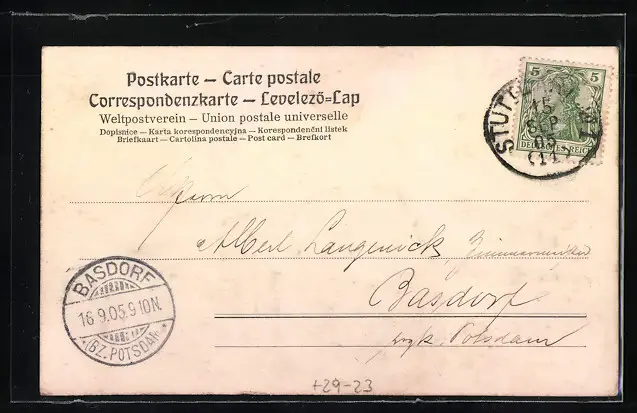 Postkarte – Carte postale
Correspondenzkarte – Levelező-Lap
Weltpostverein – Union postale universelle
Dopisnice – Karta korespondencyjna – Korespondenční listek
Briefkaart – Cartolina postale – Post card – Brefkort
5 5
DEUTSCHES REICH
STUTTGART 1
15 SEP 05
(11)
Herrn
Albert Langenick,
Basdorf
BASDORF
16.9.05.9 10N.
(BZ. POTSDAM)
Bzk. Potsdam
+29-23